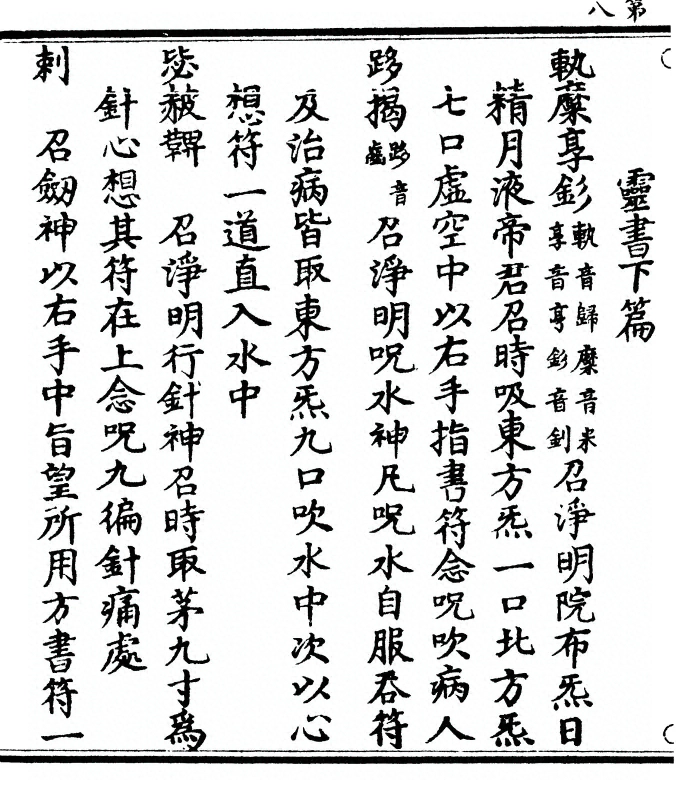 第八
靈書下篇
軌糜享釤軌音歸糜音米享音亨釤音釗召淨明院布炁日
精月液帝君召時吸東方炁一口北方炁
七口虛空中以右手指書符念呪吹病人
䟢揭召淨明呪水神凡呪水自服吞符
及治病皆取東方炁九口吹水中次以心
想符一道直入水中
召淨明行針神召時取茅九寸爲
針心想其符在上念呪九徧針痛處
刺 召劔神以右手中旨望所用方書符一